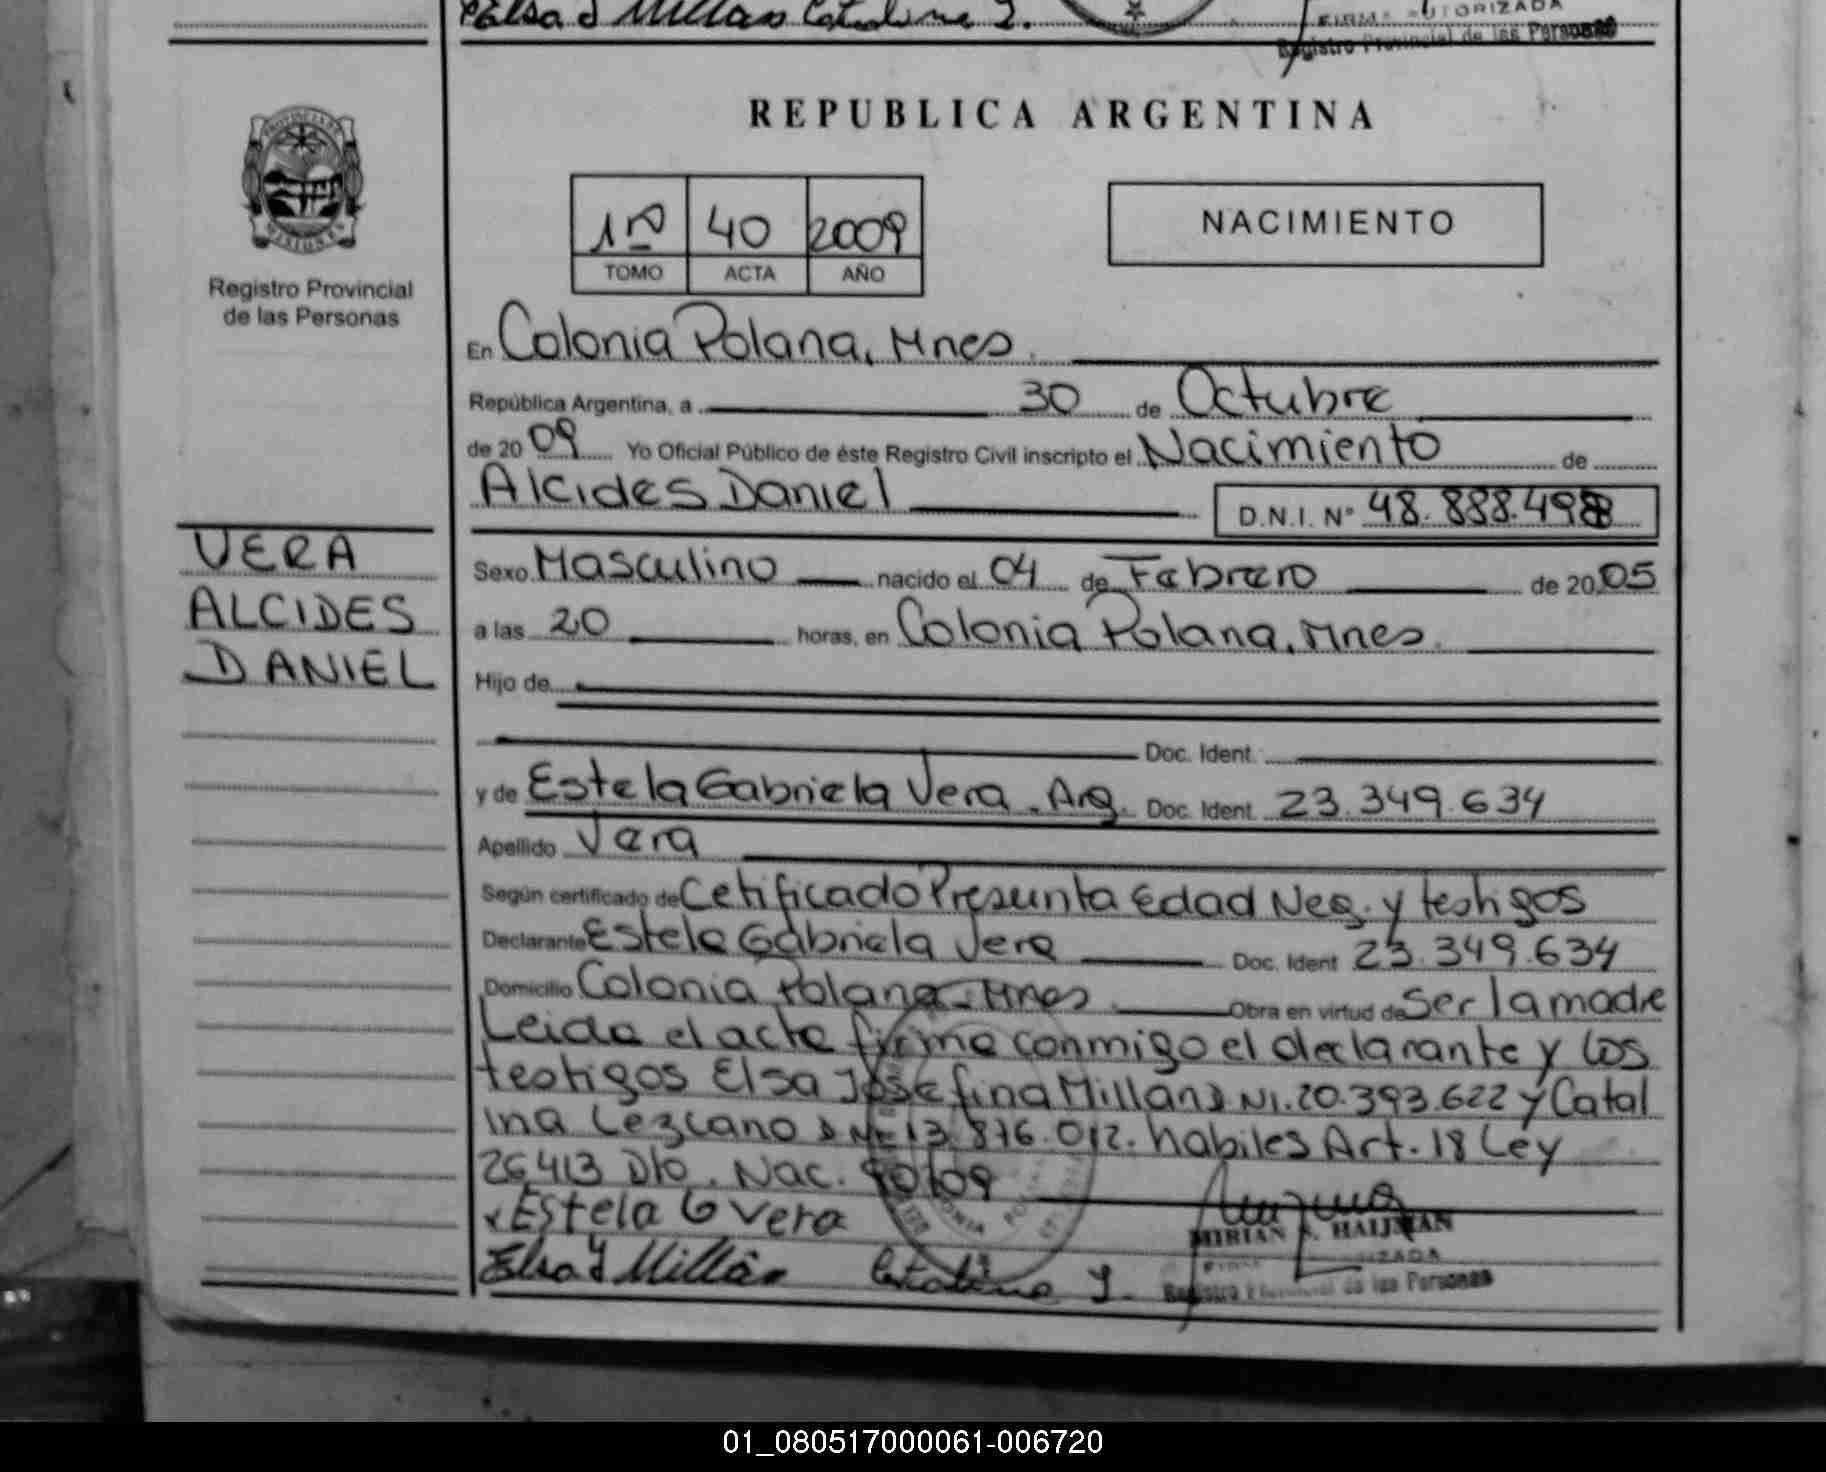 Elsa J Millan Catalina L.
FIRMA AUTORIZADA
Registro Provincial de las Personas
REPUBLICA ARGENTINA
PROVINCIA DE
MISIONES
1ro 40 2009
TOMO ACTA AÑO
NACIMIENTO
Registro Provincial
de las Personas
En Colonia Polana, Mnes.
República Argentina, a 30 de Octubre
de 2009 Yo Oficial Público de éste Registro Civil inscripto el Nacimiento de
Alcides Daniel D.N.I. Nº 48.888.498
VERA
ALCIDES
DANIEL
Sexo Masculino nacido el 04 de Febrero de 2005
a las 20 horas, en Colonia Polana, Mnes.
Hijo de
Doc. Ident.
y de Estela Gabriela Vera - Arg. Doc. Ident. 23.349.634
Apellido Vera
Según certificado de Cetificado Presunta Edad Neg. y testigos
Declarante Estela Gabriela Vera Doc. Ident 23.349.634
Domicilio Colonia Polana - Mnes Obra en virtud de Ser la madre
Leida el acta firma conmigo el declarante y los
testigos Elsa Josefina Millan DNI. 20.393.622 y Catal
ina Lezcano DNI 13.876.012. habiles Art. 18 Ley
26.413 Dto. Nac. 90/09
x Estela G Vera
MIRIAN HAIJMAN
Elsa J Millán Catalina L.
Registro Provincial de las Personas
01_080517000061-006720